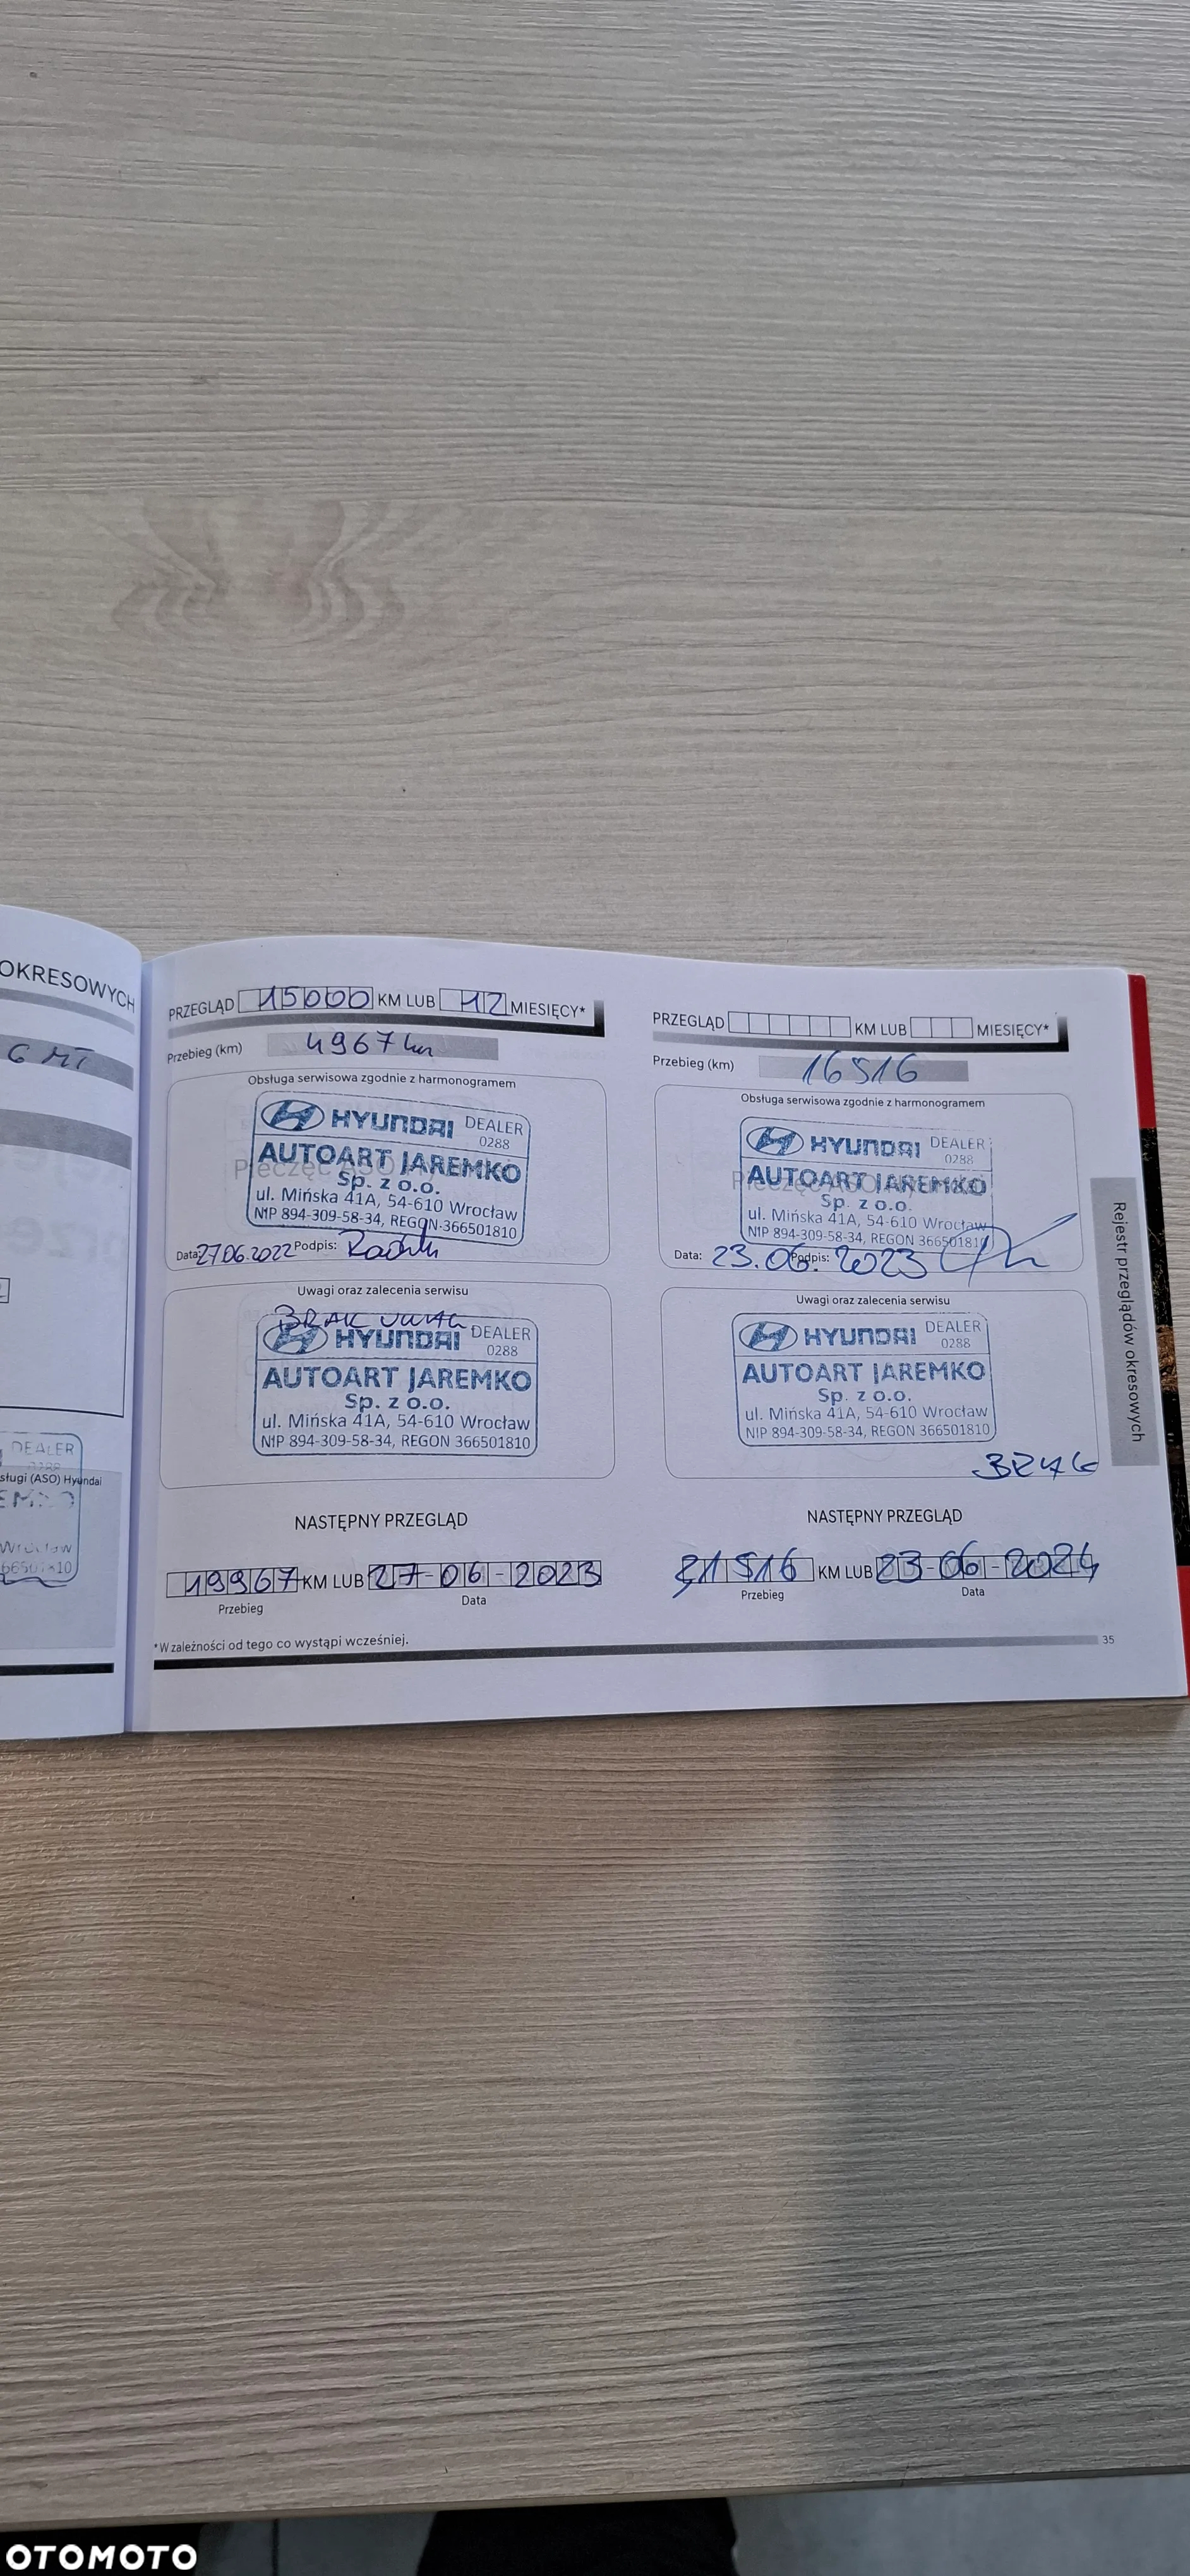 OKRESOWYCH
DEALER
sługi (ASO) Hyundai
Wrocław
PRZEGLĄD 15000 KM LUB 12 MIESIĘCY*
Przebieg (km) 4967 km
Obsługa serwisowa zgodnie z harmonogramem
HYUNDAI DEALER
0288
AUTOART JAREMKO
Sp. z o.o.
ul. Mińska 41A, 54-610 Wrocław
NIP 894-309-58-34, REGON 366501810
Data: 27.06.2022 Podpis:
Uwagi oraz zalecenia serwisu
BRAK UWAG
HYUNDAI DEALER
0288
AUTOART JAREMKO
Sp. z o.o.
ul. Mińska 41A, 54-610 Wrocław
NIP 894-309-58-34, REGON 366501810
NASTĘPNY PRZEGLĄD
19967 KM LUB 27-06-2023
Przebieg Data
*W zależności od tego co wystąpi wcześniej.
PRZEGLĄD KM LUB MIESIĘCY*
Przebieg (km) 16516
Obsługa serwisowa zgodnie z harmonogramem
HYUNDAI DEALER
0288
AUTOART JAREMKO
Sp. z o.o.
ul. Mińska 41A, 54-610 Wrocław
NIP 894-309-58-34, REGON 366501810
Data: 23.06.2023 Podpis:
Uwagi oraz zalecenia serwisu
HYUNDAI DEALER
0288
AUTOART JAREMKO
Sp. z o.o.
ul. Mińska 41A, 54-610 Wrocław
NIP 894-309-58-34, REGON 366501810
BRAK
NASTĘPNY PRZEGLĄD
31516 KM LUB 23-06-2024
Przebieg Data
35
Rejestr przeglądów okresowych
OTOMOTO